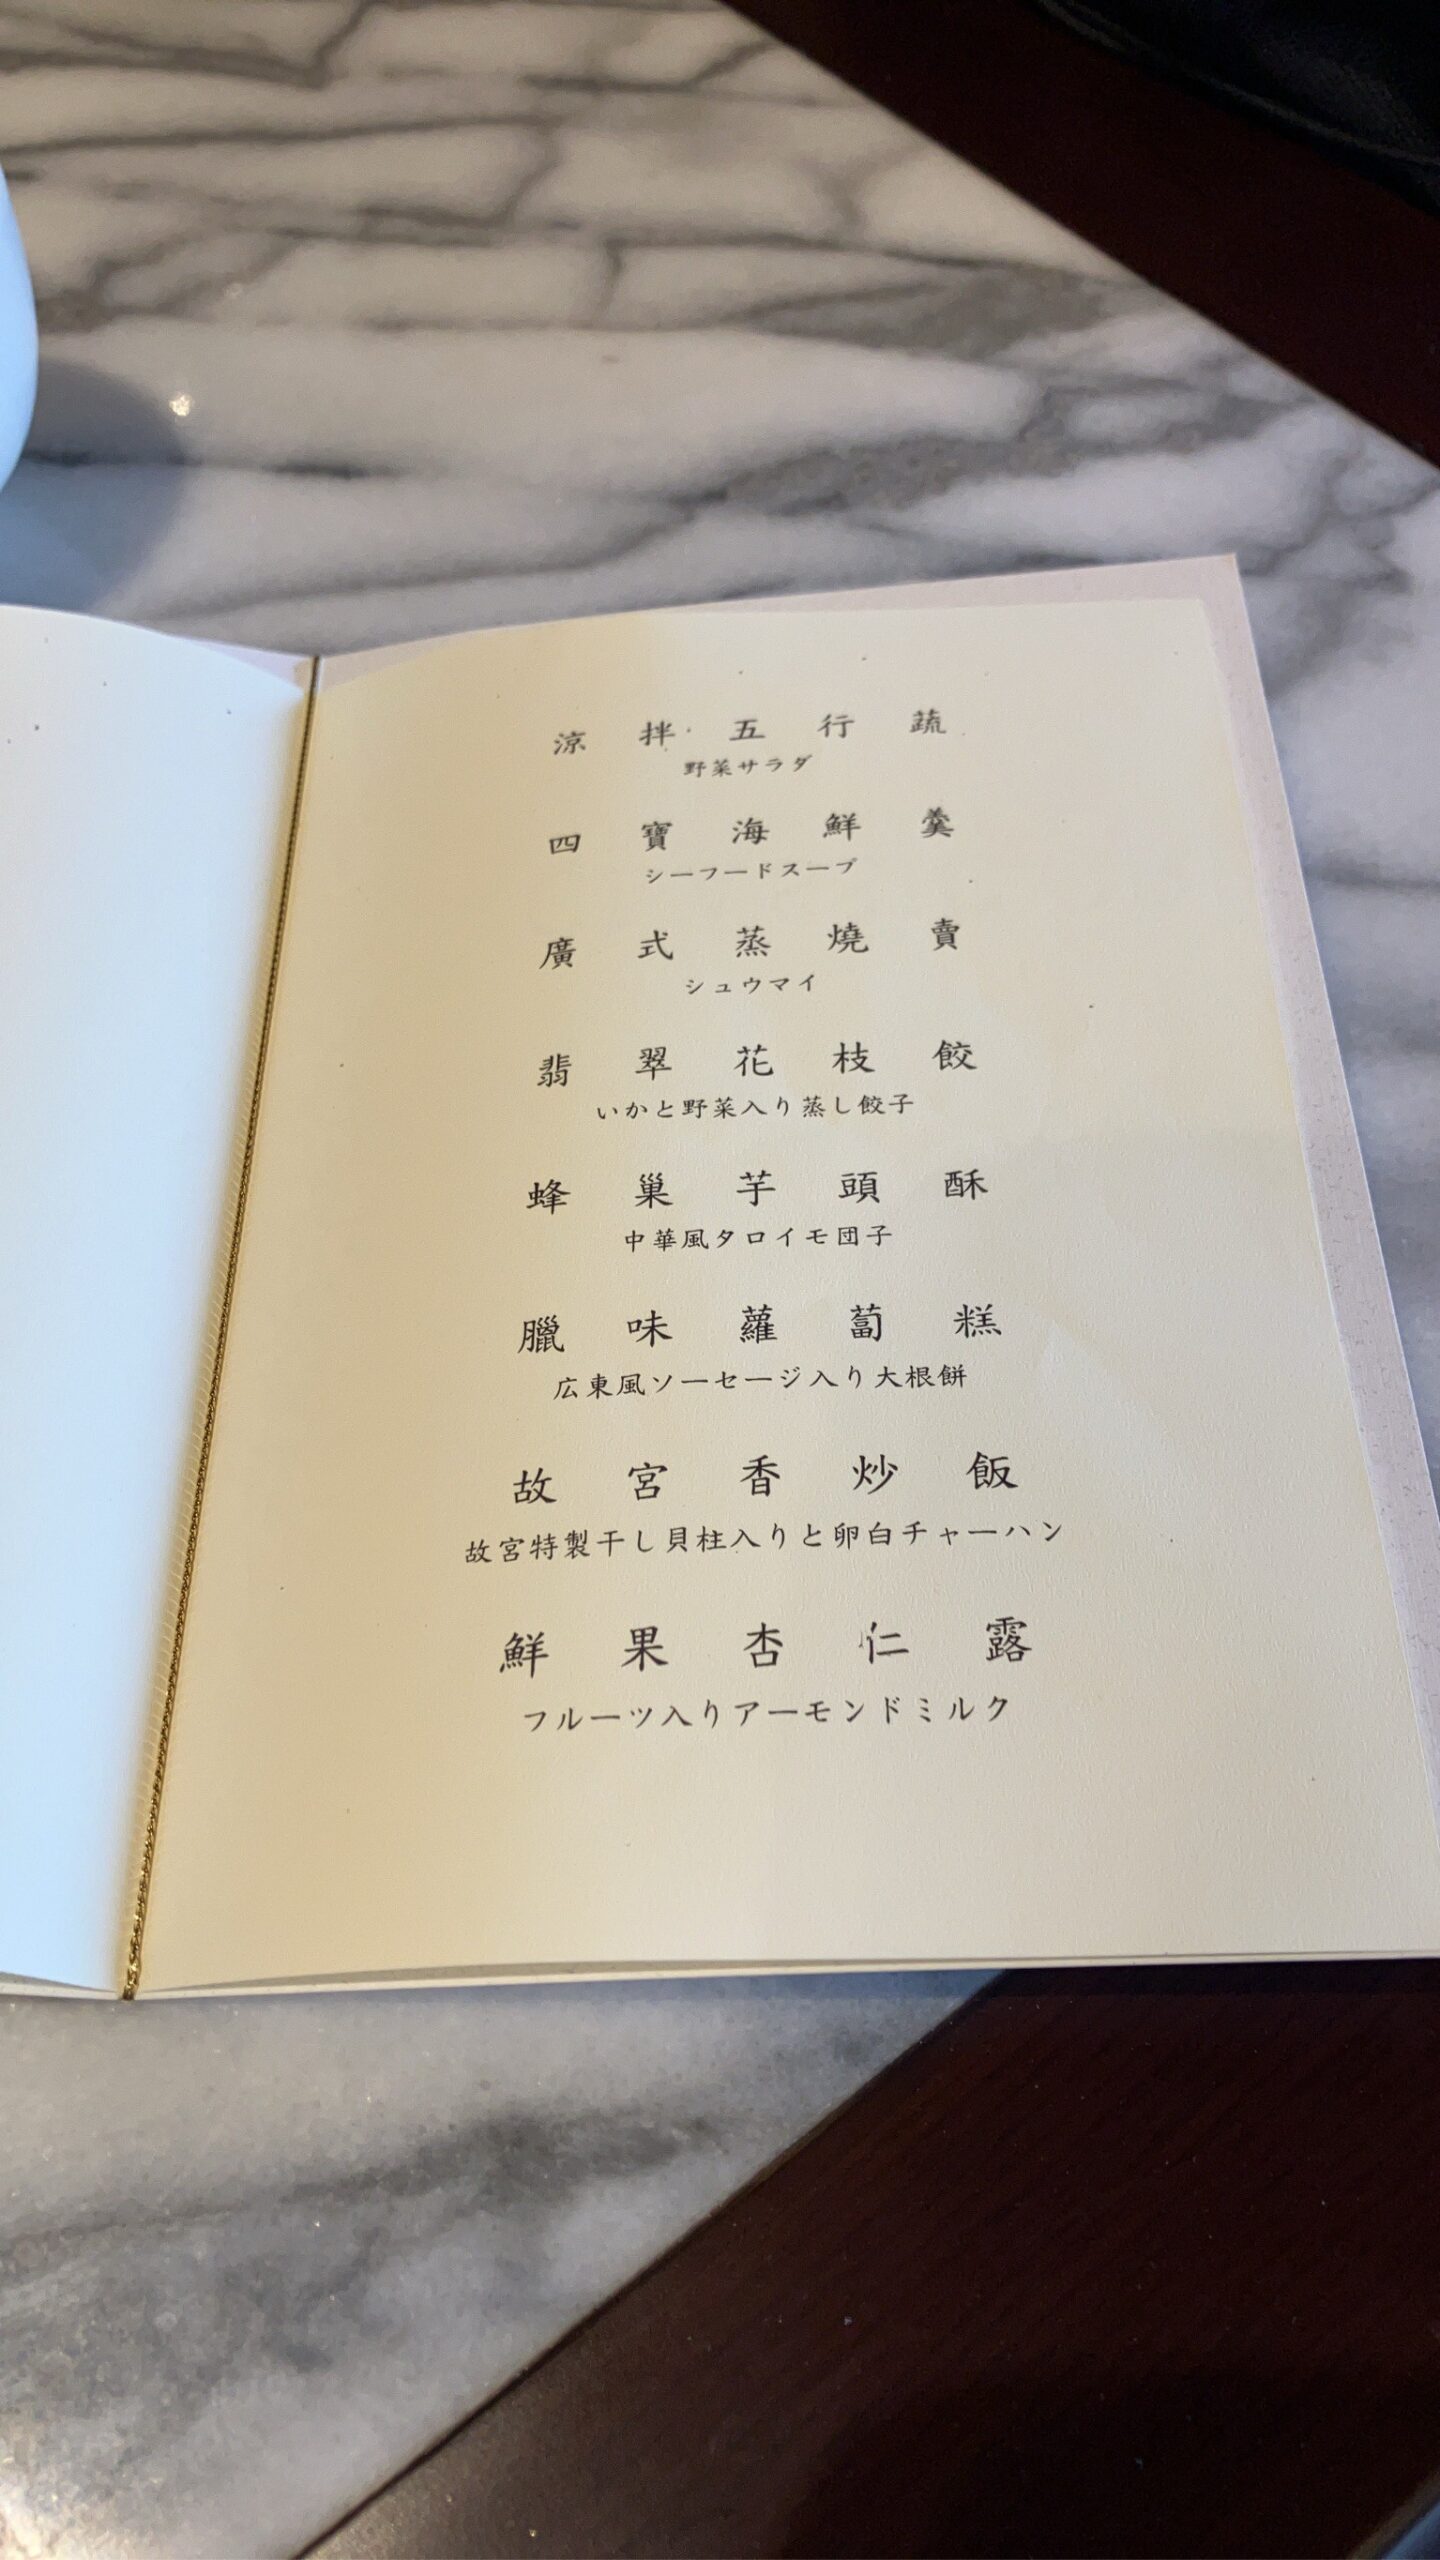 涼拌五行蔬
野菜サラダ
四寶海鮮羹
シーフードスープ
廣式蒸燒賣
シュウマイ
翡翠花枝餃
いかと野菜入り蒸し餃子
蜂巢芋頭酥
中華風タロイモ団子
臘味蘿蔔糕
広東風ソーセージ入り大根餅
故宮香炒飯
故宮特製干し貝柱入りと卵白チャーハン
鮮果杏仁露
フルーツ入りアーモンドミルク